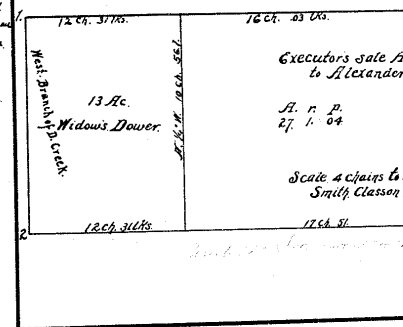 1.
12 Ch. 31 lks.
16 Ch. .03 lks.
West Branch of D. Creek.
13 Ac.
Widow's Dower.
10 Ch. 56 l.
Executors Sale
to Alexander
A. r. p.
27. 1. 04
Scale 4 chains to
Smith, Classon
2
12 Ch. 31 lks.
17 Ch. 51.